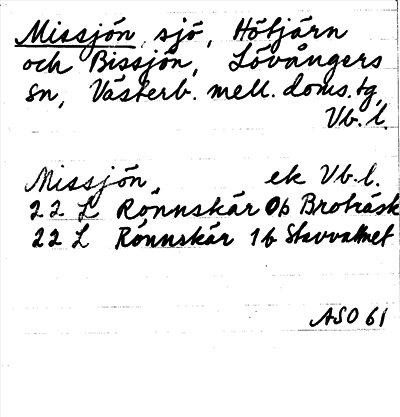 Missjön, sjö, Hötjärn
och Bissjön, Lövångers
sn, Västerb. mell. doms.tg,
Vb.l.
Missjön, ek Vb.l.
22 L Rönnskär 0b Broträsk
22 L Rönnskär 1b Stavvattnet
ASO 61